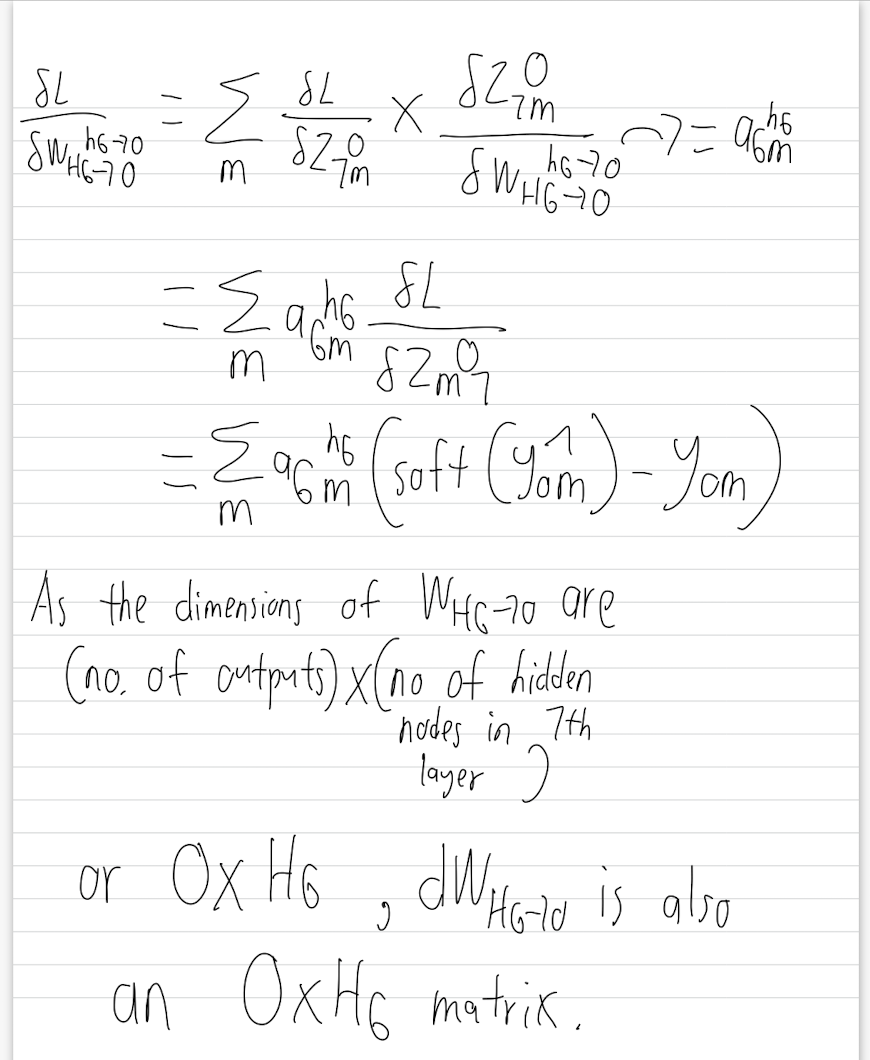 δL/δW_{H6→O}^{h6→O} = Σ_m δL/δZ_{7m}^{O} × δZ_{7m}^{O}/δW_{H6→O}^{h6→O} → = a_{6m}^{h6}
= Σ_m a_{6m}^{h6} δL/δZ_{m7}^{O}
= Σ_m a_{6m}^{h6} (soft(y^_{om}) - y_{om})
As the dimensions of W_{H6→O} are
(no. of outputs) x (no of hidden
nodes in 7th
layer )
or O x H6 , dW_{H6→O} is also
an O x H6 matrix.